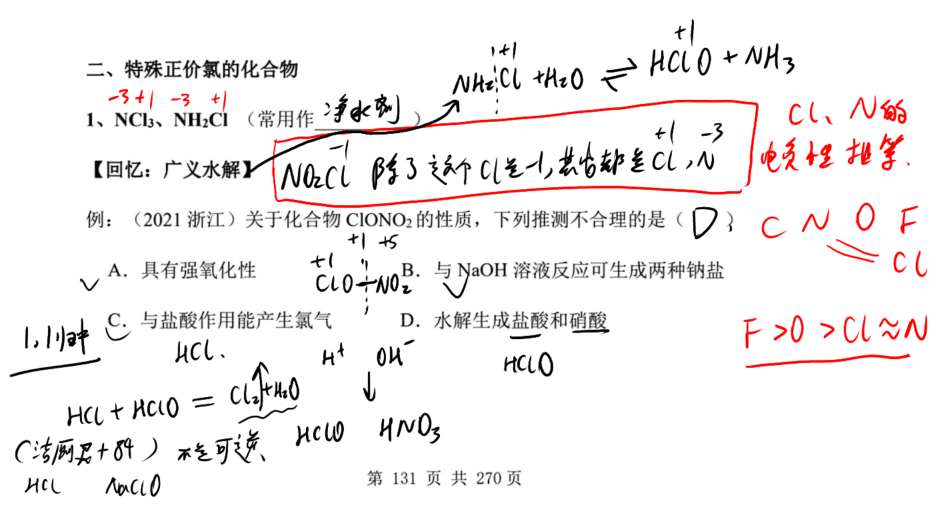 二、特殊正价氯的化合物
-3 +1 -3 +1
1、NCl₃、NH₂Cl （常用作 净水剂 ）
+1 +1
NH₂ Cl + H₂O ⇌ HClO + NH₃
【回忆：广义水解】
-1 +1 -3
NO₂Cl 除了这个Cl是-1,其余都是Cl,N
Cl、N的
电负性 相等.
例：（2021 浙江）关于化合物 ClONO₂ 的性质，下列推测不合理的是（ D ）
C N O F
Cl
+1 +5
A．具有强氧化性
+1
ClO NO₂
B．与 NaOH 溶液反应可生成两种钠盐
C．与盐酸作用能产生氯气
D．水解生成盐酸和硝酸
F>O>Cl≈N
1,1归中
HCl.
H⁺ OH⁻
HClO
HCl + HClO = Cl₂↑+H₂O
HClO HNO₃
(洁厕灵+84) 不是可逆、
HCl NaClO
第 131 页 共 270 页